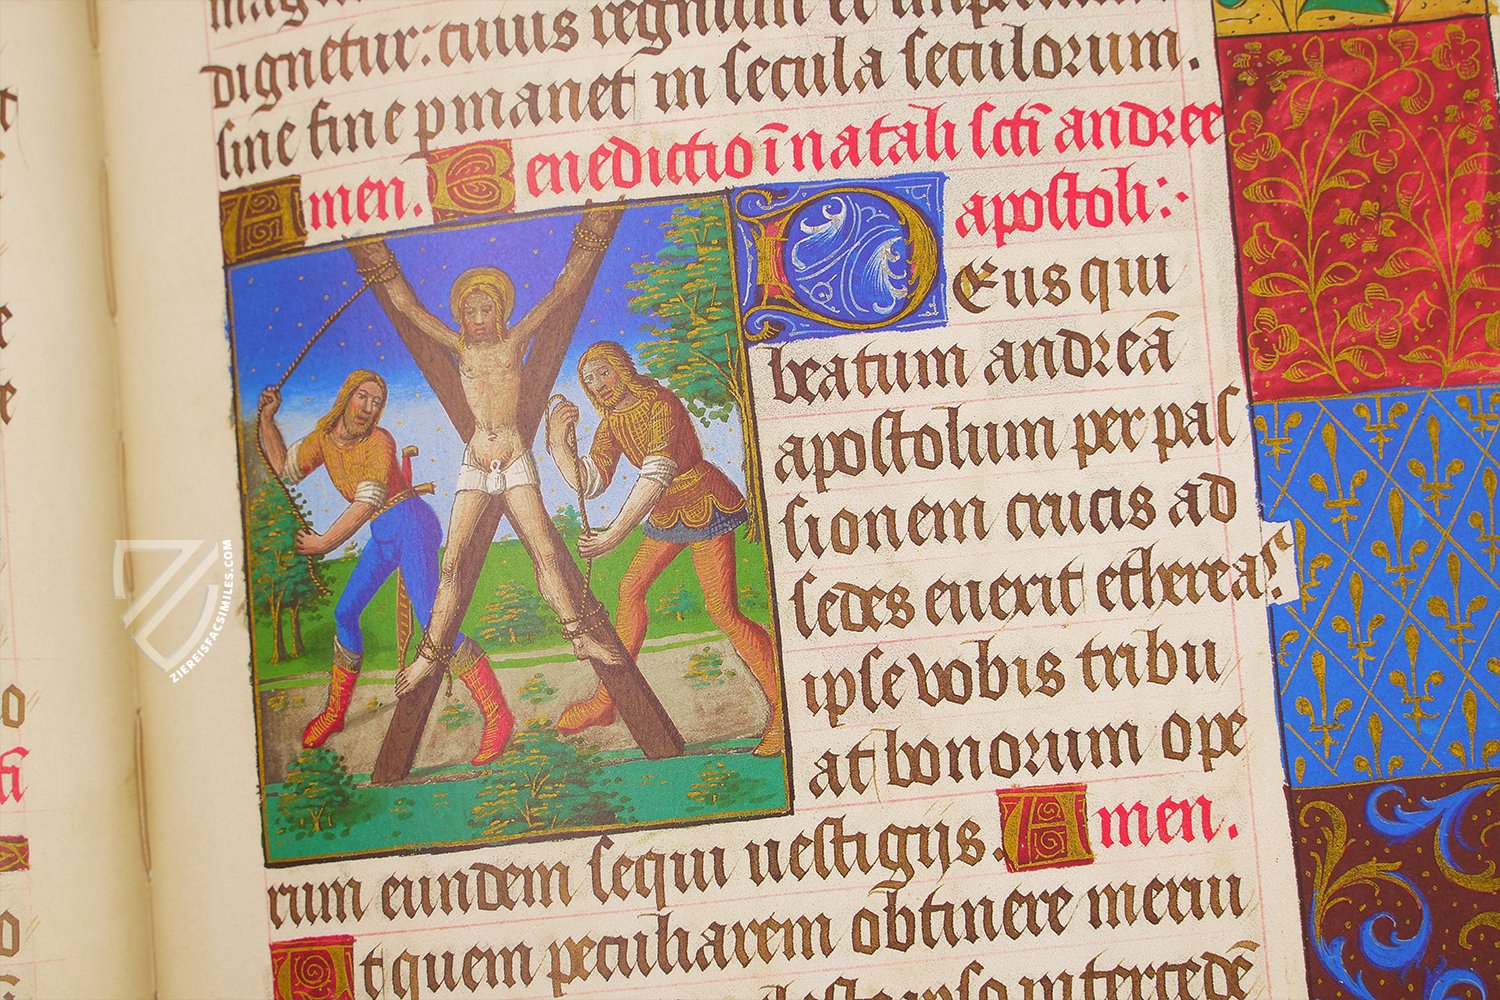 dignetur: cuius regnum et imperium
sine fine pmanet in secula seculorum.
Amen. Benedictio ī natali scti andree
apostoli:·
Deus qui
beatum andreā
apostolum per pas
sionem crucis ad
sedes euexit ethereas.
ipse vobis tribu
at bonorum ope
rum eundem sequi uestigijs. Amen.
Ut quem peculiarem obtinere merui
intercedē
ZIEREISFACSIMILES.COM